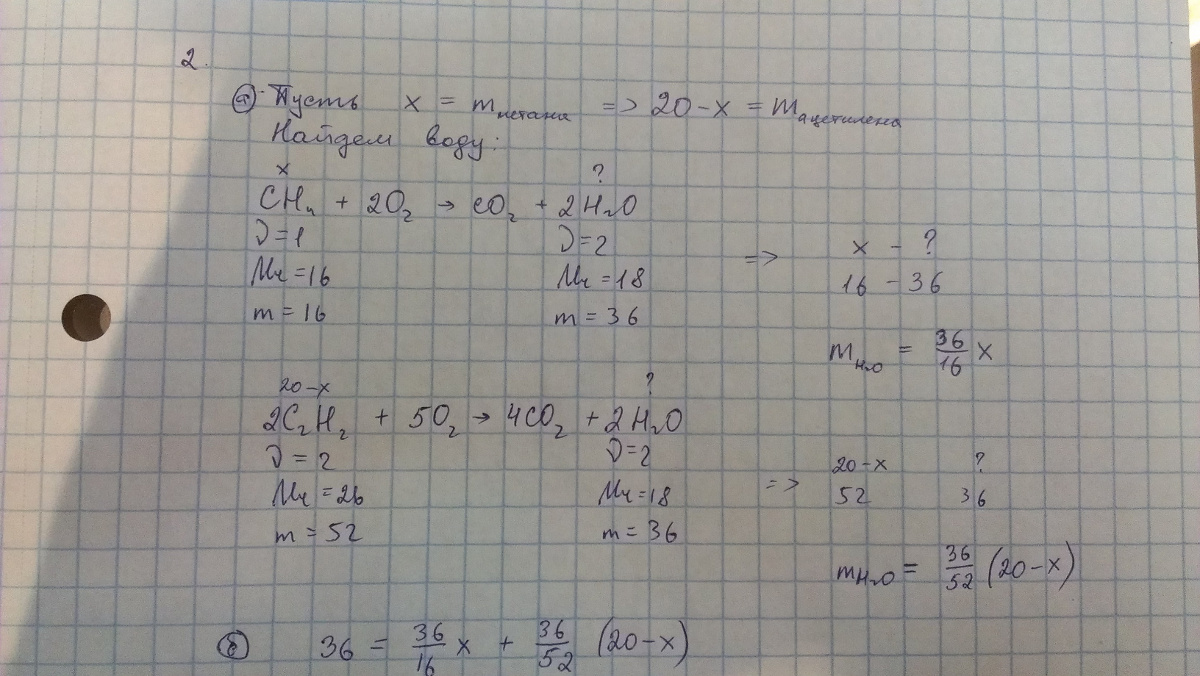 2.
а) Пусть x = m метана => 20-x = m ацетилена
Найдем воду:
x ?
CH₄ + 2O₂ → CO₂ + 2H₂O
ν=1 ν=2
Mr=16 Mr=18
m=16 m=36
=> x - ?
16 - 36
m H₂O = 36/16 x
20-x ?
2C₂H₂ + 5O₂ → 4CO₂ + 2H₂O
ν=2 ν=2
Mr=26 Mr=18
m=52 m=36
=> 20-x ?
52 36
m H₂O = 36/52 (20-x)
б) 36 = 36/16 x + 36/52 (20-x)